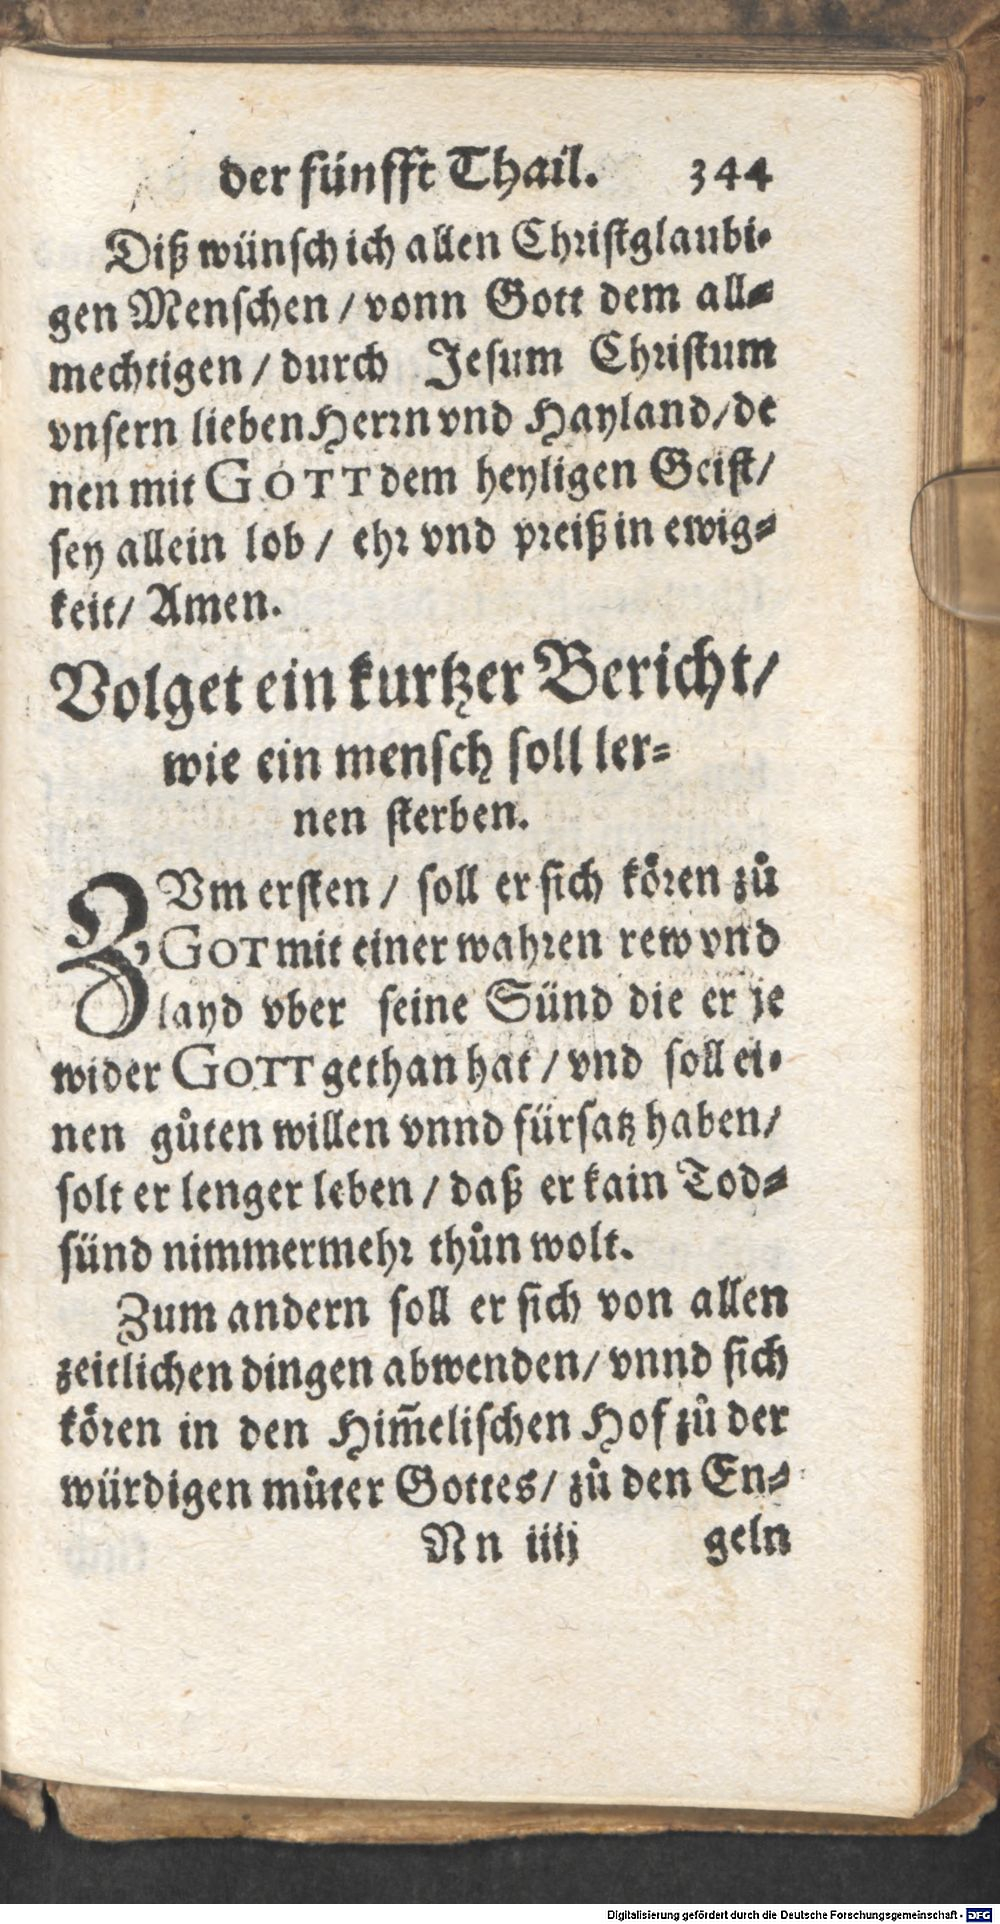 der fünfft Thail. 344
Diß wünsch ich allen Christglaubi-
gen Menschen / vonn Gott dem all-
mechtigen / durch Jesum Christum
vnsern lieben Herrn vnd Hayland / de
nen mit GOTT dem heyligen Geist /
sey allein lob / ehr vnd preiß in ewig-
keit / Amen.
Volget ein kurtzer Bericht /
wie ein mensch soll ler-
nen sterben.
ZVm ersten / soll er sich kören zů
GOT mit einer wahren rew vnd
layd vber seine Sünd die er je
wider GOTT gethan hat / vnd soll ei-
nen gůten willen vnnd fürsatz haben /
solt er lenger leben / daß er kain Tod-
sünd nimmermehr thůn wolt.
Zum andern soll er sich von allen
zeitlichen dingen abwenden / vnnd sich
kören in den Him̃elischen Hof zů der
würdigen můter Gottes / zů den En-
Nn iiij geln
Digitalisierung gefördert durch die Deutsche Forschungsgemeinschaft - DFG